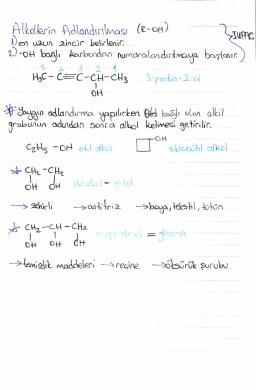 Alkollerin Adlandırılması (R-OH)
1) en uzun zincir belirlenir. IUPAC
2) -OH bağlı karbondan numaralandırılmaya başlanır.
5 4 3 2 1
H₃C-C≡C-CH-CH₃ 3-pentin-2-ol
OH
Yaygın adlandırma yapılırken bağlı olan alkil
grubunun adından sonra alkol kelimesi getirilir.
C₂H₅-OH etil alkol OH siklobütil alkol
CH₂-CH₂
OH OH = glikol
→ zehirli → antifriz → boya, tekstil, tütün
CH₂-CH-CH₂
OH OH OH = gliserin
→ temizlik maddeleri → reçine → öksürük şurubu